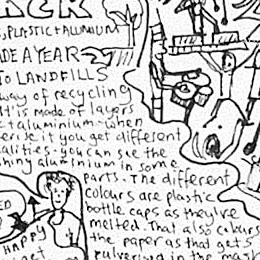 ACK
S, PLASTIC + ALUMINIUM
ADE A YEAR
TO LANDFILLS
way of recycling
It is made of layers
c + aluminium - when
erise it you get different
alities. you can see the
hing aluminium in some
parts. The different
colours are plastic
bottle caps as they've
melted. That also colours
the paper as that gets
pulverised in the mash
ED
HAPPY
get